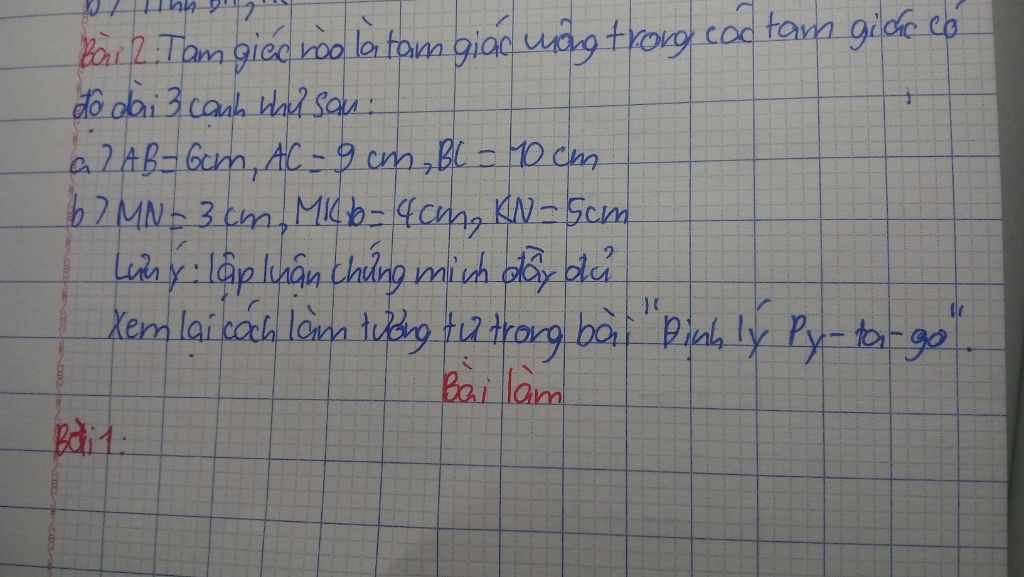 b) Tính
Bài 2: Tam giác nào là tam giác vuông trong các tam giác có
độ dài 3 cạnh như sau:
a) AB = 6cm, AC = 9 cm, BC = 10 cm
b) MN = 3 cm, MK = 4cm, KN = 5cm
Lưu ý: lập luận chứng minh đầy đủ
Xem lại cách làm tương tự trong bài "Định lý Py-ta-go".
Bài làm
Bài 1: